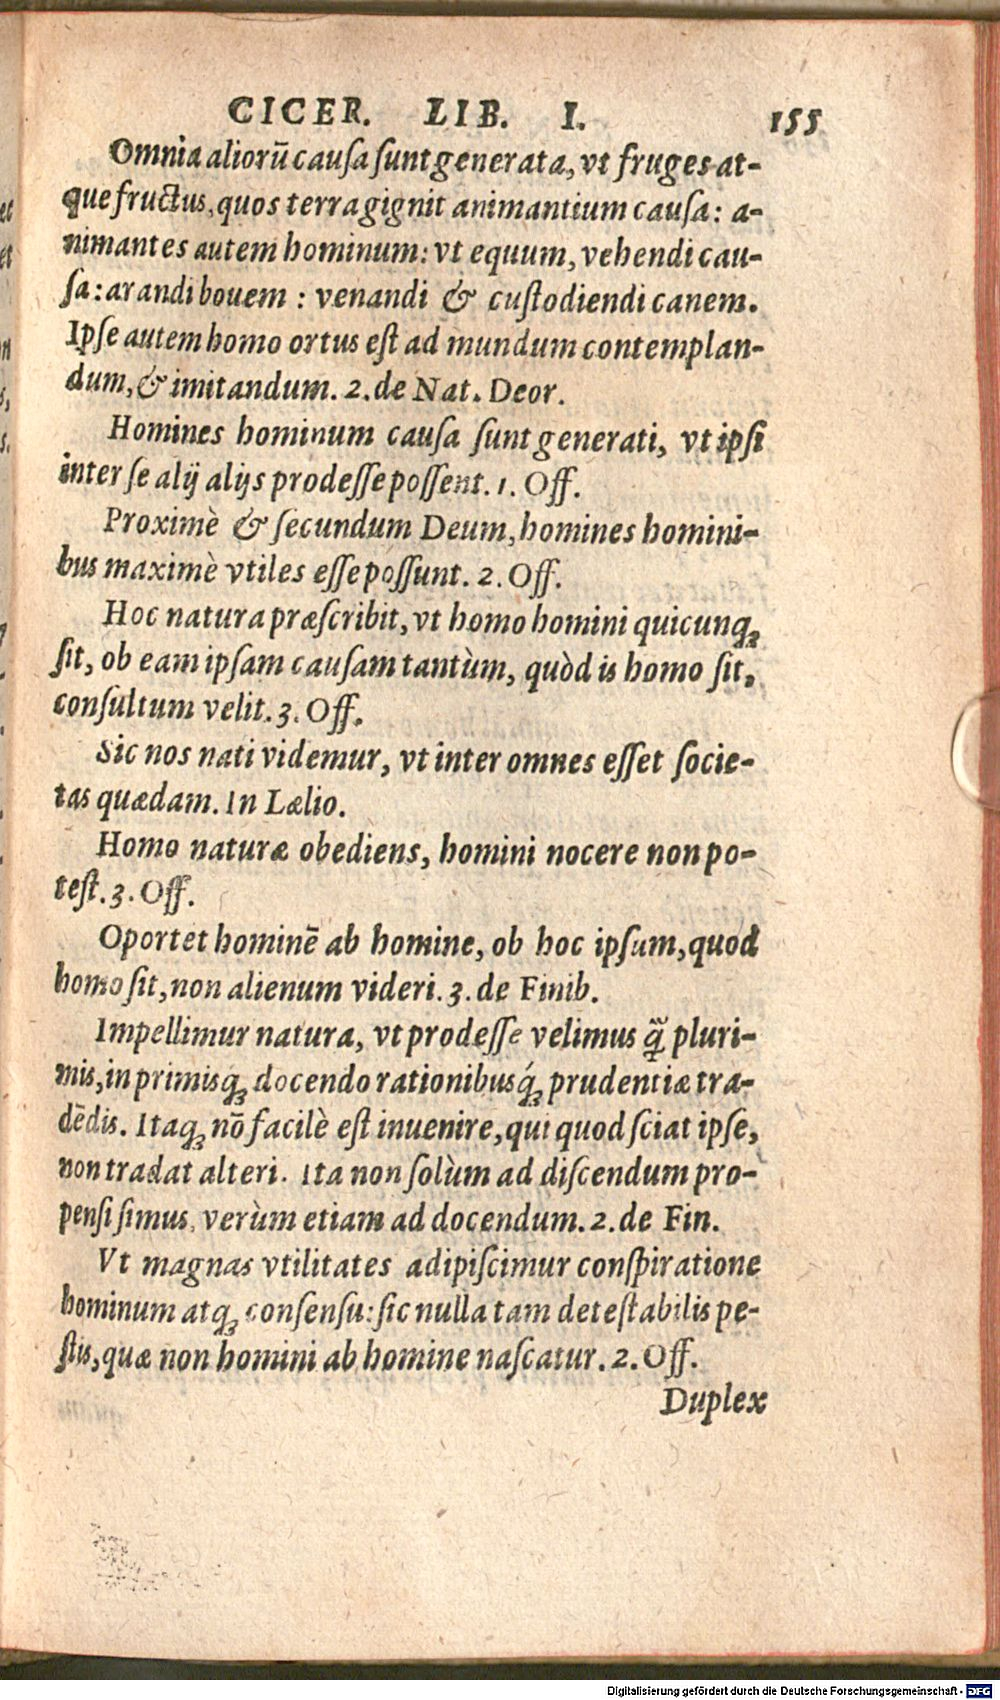 CICER. LIB. I. 155
Omnia aliorū cauſa ſunt generata, vt fruges at-
que fructus, quos terra gignit animantium cauſa: a-
nimantes autem hominum: vt equum, vehendi cau-
ſa: arandi bouem: venandi & cuſtodiendi canem.
Ipſe autem homo ortus eſt ad mundum contemplan-
dum, & imitandum. 2. de Nat. Deor.
Homines hominum cauſa ſunt generati, vt ipſi
inter ſe alij alijs prodeſſe poſſent. 1. Off.
Proximè & ſecundum Deum, homines homini-
bus maximè vtiles eſſe poſſunt. 2. Off.
Hoc natura præſcribit, vt homo homini quicunq́ꝫ
ſit, ob eam ipſam cauſam tantùm, quòd is homo ſit,
conſultum velit. 3. Off.
Sic nos nati videmur, vt inter omnes eſſet ſocie-
tas quædam. In Lælio.
Homo naturæ obediens, homini nocere non po-
teſt. 3. Off.
Oportet hominē ab homine, ob hoc ipſum, quod
homo ſit, non alienum videri. 3. de Finib.
Impellimur natura, vt prodeſſe velimus q̃ pluri-
mis, in primisqꝫ docendo rationibusq́ꝫ prudentiæ tra-
dēdis. Itaqꝫ nō facilè eſt inuenire, qui quod ſciat ipſe,
non tradat alteri. Ita non ſolùm ad diſcendum pro-
penſi ſimus, verùm etiam ad docendum. 2. de Fin.
Vt magnas vtilitates adipiſcimur conſpiratione
hominum atqꝫ conſenſu: ſic nulla tam deteſtabilis pe-
ſtis, quæ non homini ab homine naſcatur. 2. Off.
Duplex
Digitalisierung gefördert durch die Deutsche Forschungsgemeinschaft - DFG